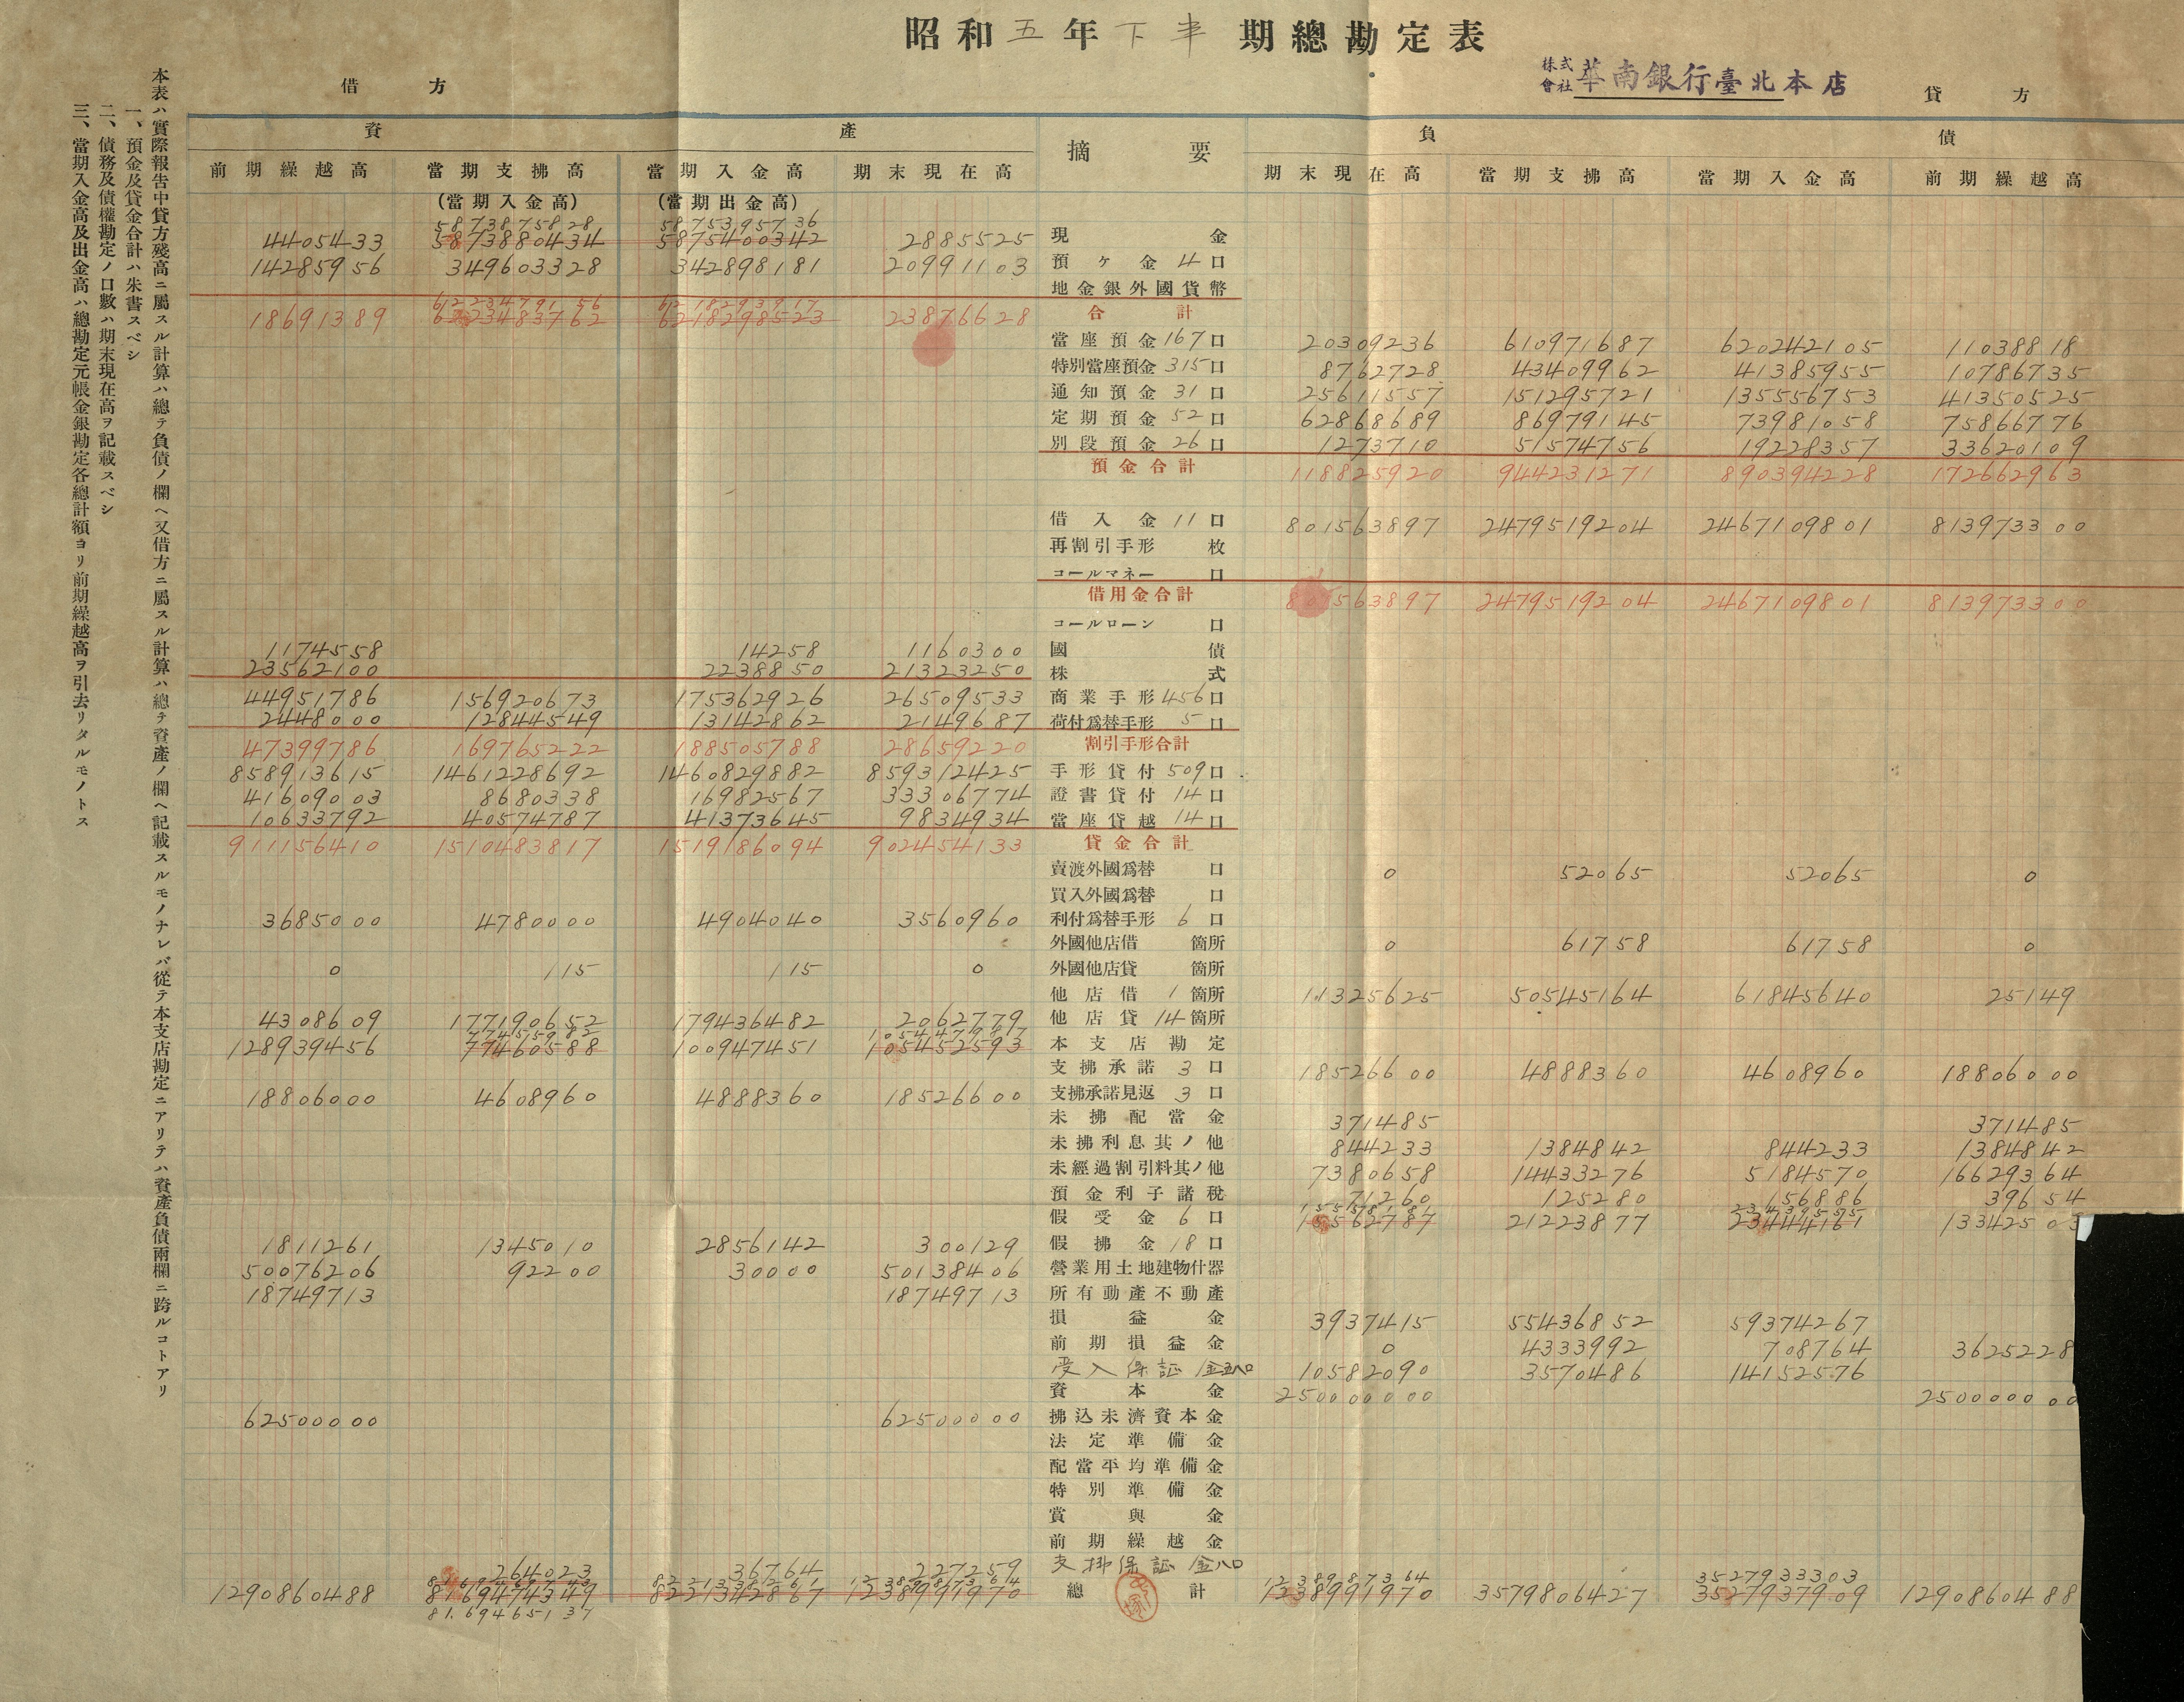 昭和五年下半期總勘定表
株式會社 華南銀行臺北本店
借方 貸方
資產 摘要 負債
前期繰越高 當期支拂高 當期入金高 期末現在高 期末現在高 當期支拂高 當期入金高 前期繰越高
(當期入金高) (當期出金高)
5873875828 5875395736
4405433 5873880434 5875400342 2885525 現金
14285956 349603328 342898181 20991103 預ヶ金 4口
地金銀外國貨幣
6223479156 6218293917
18691389 6223483762 6218298523 23876628 合計
當座預金 167口 20309236 610971687 620242105 11038818
特別當座預金 315口 8762728 43409962 41385955 10786735
通知預金 31口 25611557 151295721 135556753 41350525
定期預金 52口 62868689 86979145 73981058 75866776
別段預金 26口 1273710 51574756 19228357 33620109
預金合計 118825920 944231271 890394228 172662963
借入金 11口 801563897 2479519204 2467109801 813973300
再割引手形 枚
コールマネー 口
借用金合計 801563897 2479519204 2467109801 813973300
コールローン 口
1174558 14258 1160300 國債
23562100 2238850 21323250 株式
44951786 156920673 175362926 26509533 商業手形 456口
2448000 12844549 13142862 2149687 荷付爲替手形 5口
47399786 169765222 188505788 28659220 割引手形合計
858913615 1461228692 1460829882 859312425 手形貸付 509口
41609003 8680338 16982567 33306774 證書貸付 14口
10633792 40574787 41373645 9834934 當座貸越 14口
911156410 1510483817 1519186094 902454133 貸金合計
賣渡外國爲替 口 0 52065 52065 0
買入外國爲替 口
3685000 4780000 4904040 3560960 利付爲替手形 6口
外國他店借 箇所 0 61758 61758 0
0 115 115 0 外國他店貸 箇所
他店借 1箇所 11325625 50545164 61845640 25149
4308609 177190652 179436482 2062779 他店貸 14箇所
77455982 105447987
128939456 77460588 100947451 105452593 本支店勘定
支拂承諾 3口 18526600 4888360 4608960 18806000
18806000 4608960 4888360 18526600 支拂承諾見返 3口
未拂配當金 371485 371485
未拂利息其ノ他 844233 1384842 844233 1384842
未經過割引料其ノ他 7380658 14433276 5184570 16629364
預金利子諸税 71260 125280 156886 39654
15558181 23439555
假受金 6口 15562787 21223877 23444161 13342503
1811261 1345010 2856142 300129 假拂金 18口
50076206 92200 30000 50138406 營業用土地建物什器
18749713 18749713 所有動產不動產
損益金 3937415 55436852 59374267
前期損益金 0 4333992 708764 3625228
受入保証金 10582090 3570486 14152576
資本金 250000000 250000000
62500000 62500000 拂込未濟資本金
法定準備金
配當平均準備金
特別準備金
賞與金
前期繰越金
264023 36764 227259 支拂保証金八口
1238987364 1238987364 3527933303
1290860488 8169474349 8221342867 1238991970 總計 1238991970 3579806427 3527937909 1290860488
8169465137
本表ハ實際報告中貸方殘高ニ屬スル計算ハ總テ負債ノ欄ヘ又借方ニ屬スル計算ハ總テ資產ノ欄ヘ記載スルモノナレバ從テ本支店勘定ニアリテハ資產負債兩欄ニ跨ルコトアリ
一、預金及貸金合計ハ朱書スベシ
二、債務及債權勘定ノ口數ハ期末現在高ヲ記載スベシ
三、當期入金高及出金高ハ總勘定元帳金銀勘定各總計額ヨリ前期繰越高ヲ引去リタルモノトス